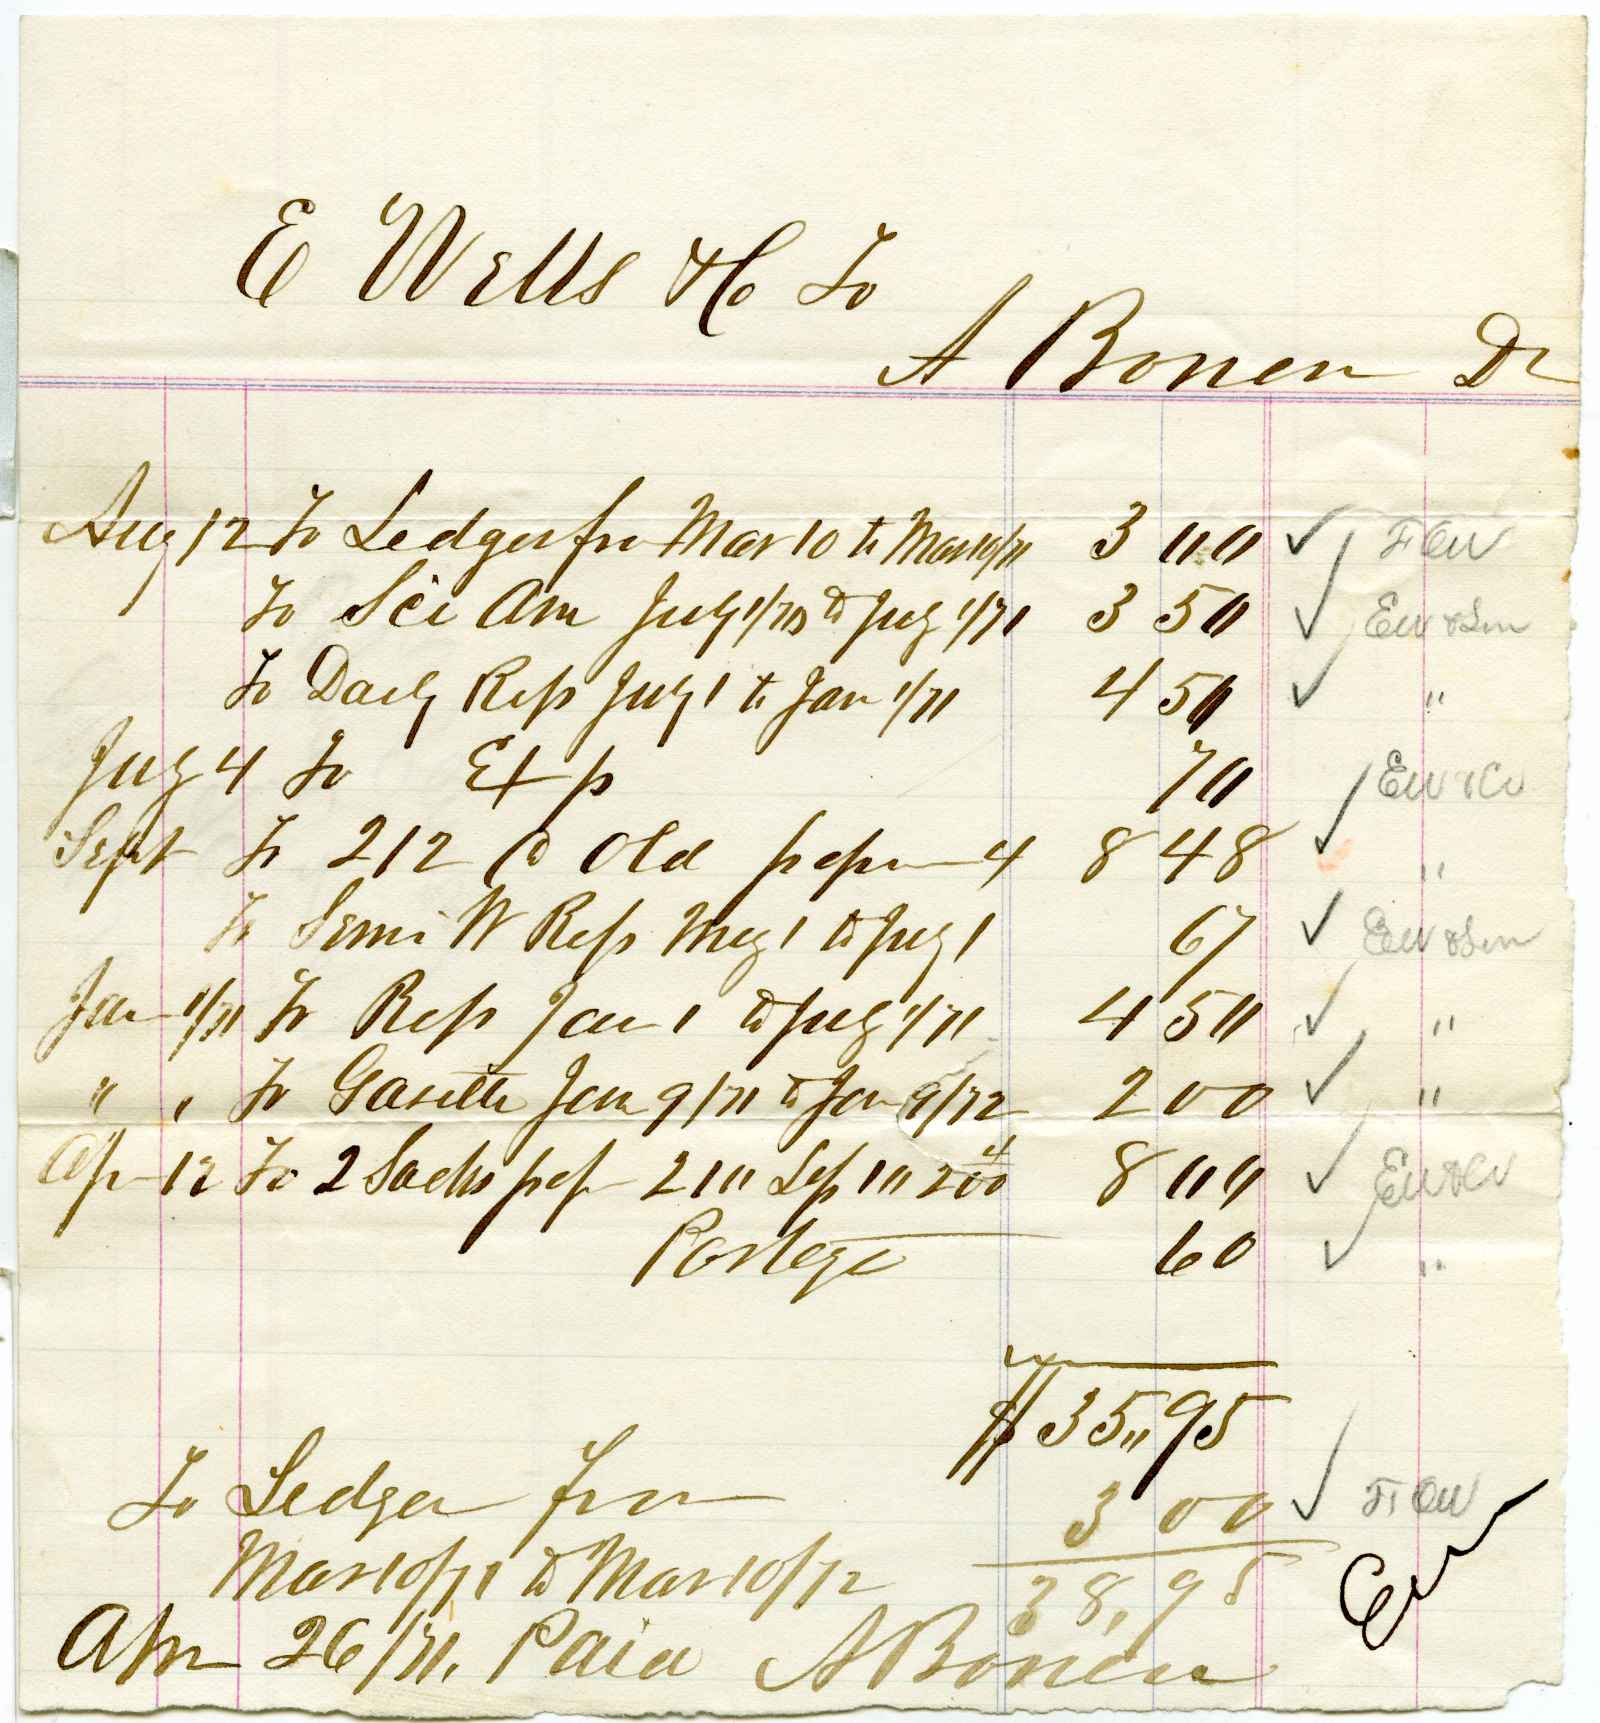 E Wells & Co To
A Bonen Dr
Aug 12 To Ledger fro Mar 10 to Mar 10/71 3 00 ✓ F CW
To Sci Am July 1/70 to July 1/71 3 50 ✓ EW & Son
To Daily Rep July 1 to Jan 1/71 4 50 ✓ "
July 4 To Exp 70 EW & Co
Sept To 212 @ Old paper 4 8 48 ✓ "
To Semi W Rep May 1 to July 1 67 ✓ EW & Son
Jan 1/71 To Rep Jan 1 to July 1/71 4 50 ✓ "
" " To Gazette Jan 9/71 to Jan 9/72 2 00 ✓ "
Ap 12 To 2 Sacks pap 200 4 8 00 ✓ EW & Co
Postage 60 ✓ "
$35,,95
To Ledger from 3 00 ✓ F CW
Mar 10/71 to Mar 10/72 38,95
Apr 26/71. Paid A Bonen EW